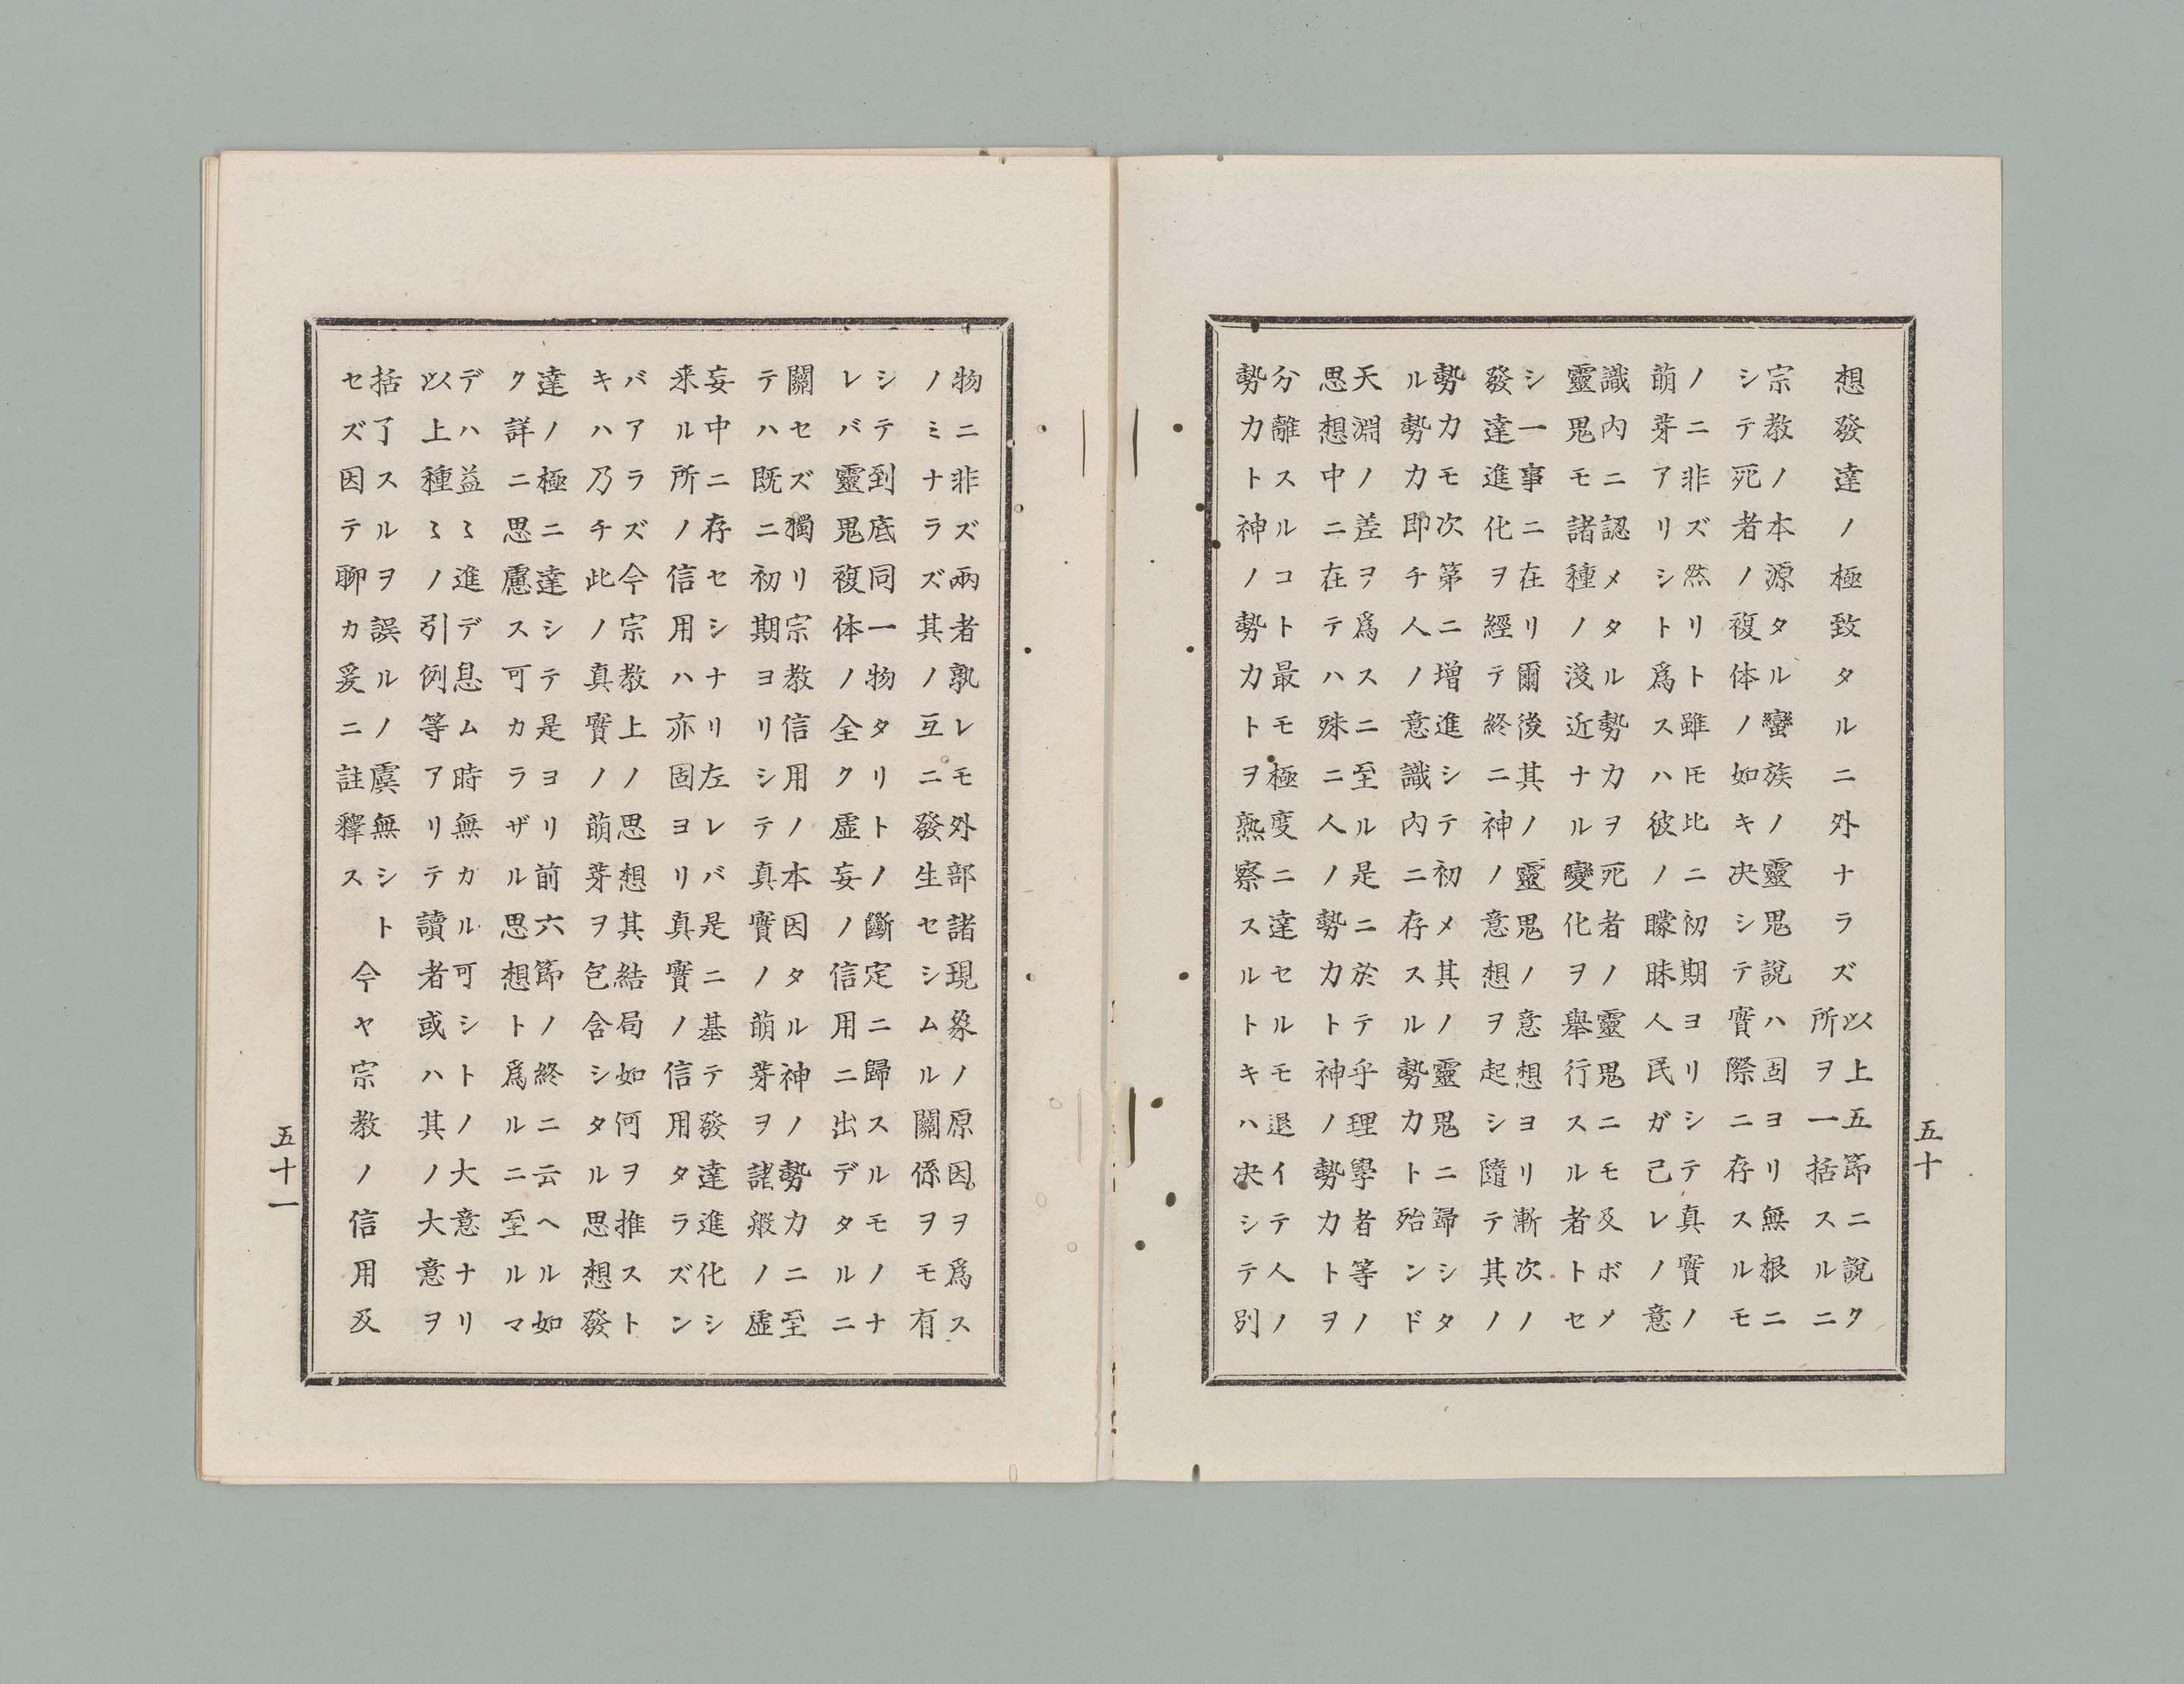 想發達ノ極致タルニ外ナラズ
以上五節ニ說ク
所ヲ一括スルニ
宗教ノ本源タル蠻族ノ靈鬼說ハ固ヨリ無根ニ
シテ死者ノ複体ノ如キ决シテ實際ニ存スルモ
ノニ非ズ然リト雖𪜈比ニ初期ヨリシテ真實ノ
萠芽アリシト爲スハ彼ノ矇昧人民ガ己レノ意
識内ニ認メタル勢力ヲ死者ノ靈鬼ニモ及ボメ
靈鬼モ諸種ノ淺近ナル變化ヲ舉行スル者トセ
シ一事ニ在リ爾後其ノ靈鬼ノ意想ヨリ漸次ノ
發達進化ヲ經テ終ニ神ノ意想ヲ起シ隨テ其ノ
勢力モ次第ニ增進シテ初メ其ノ靈鬼ニ歸シタ
ル勢力即チ人ノ意識内ニ存スル勢力ト殆ンド
天淵ノ差ヲ爲スニ至ル是ニ於テ乎理學者等ノ
思想中ニ在テハ殊ニ人ノ勢力ト神ノ勢力トヲ
分離スルコト最モ極度ニ達セルモ退イテ人ノ
勢力ト神ノ勢力トヲ熟察スルトキハ决シテ別
五十
物ニ非ズ兩者孰レモ外部諸現象ノ原因ヲ爲ス
ノミナラズ其ノ互ニ發生セシムル關係ヲモ有
シテ到底同一物タリトノ斷定ニ歸スルモノナ
レバ靈鬼複体ノ全ク虛妄ノ信用ニ出デタルニ
關セズ獨リ宗教信用ノ本因タル神ノ勢力ニ至
テハ既ニ初期ヨリシテ真實ノ萠芽ヲ諸般ノ虛
妄中ニ存セシナリ左レバ是ニ基テ發達進化シ
来ル所ノ信用ハ亦固ヨリ真實ノ信用タラズン
バアラズ今宗教上ノ思想其結局如何ヲ推スト
キハ乃チ此ノ真實ノ萠芽ヲ包含シタル思想發
達ノ極ニ達シテ是ヨリ前六節ノ終ニ云ヘル如
ク詳ニ思慮ス可カラザル思想ト爲ルニ至ルマ
デハ益〻進デ息ム時無カル可シトノ大意ナリ
以上種〻ノ引例等アリテ讀者或ハ其ノ大意ヲ
括了スルヲ誤ルノ虞無シト
セズ因テ聊カ爰ニ註釋ス
今ヤ宗教ノ信用及
五十一